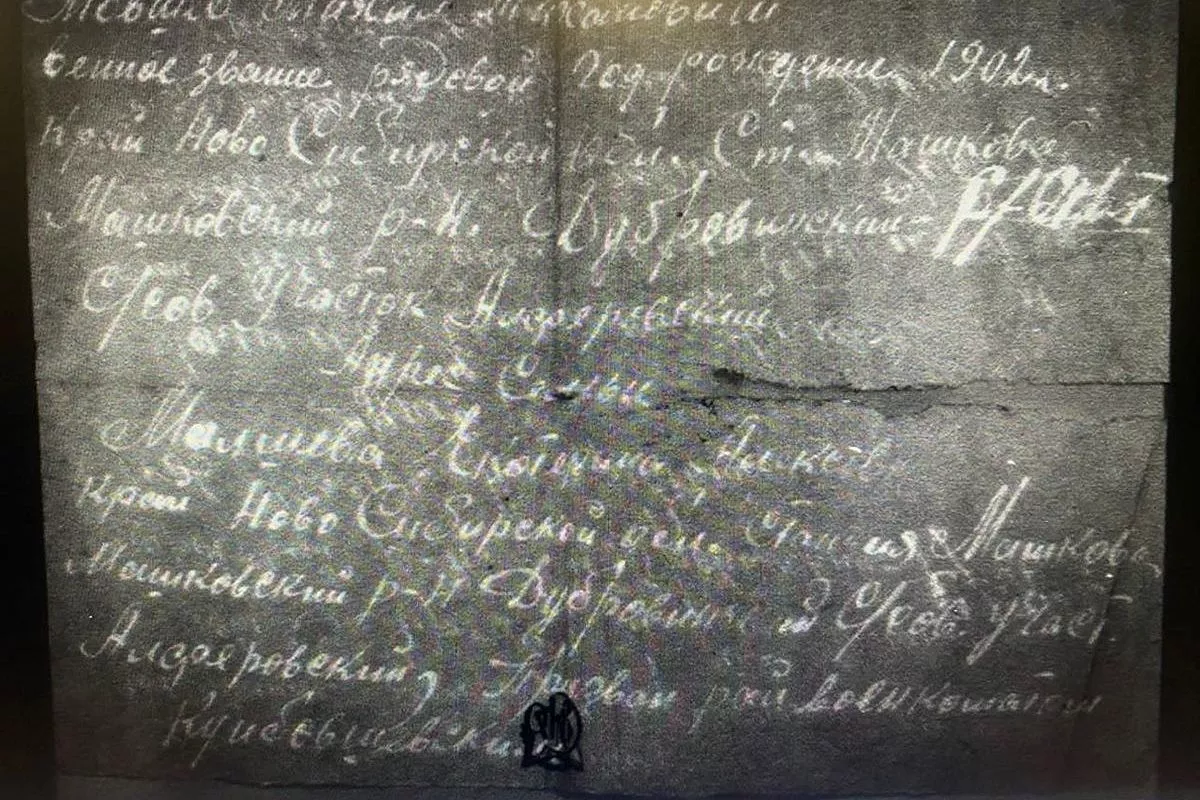 венное звание рядовой Год. рождение 1902 г.
край Ново Сибирской обл. Ст. Машково
Машковский р-н. Дубровинский
С/сов. Участок Алдояровский
Адрес Семьи
Малшева
край Ново Сибирской обл. Станция Машкова
Машковский р-н Дубровинский С/сов. Участ.
Алдояровский, Призван рай военкоматом
Куйбышевским